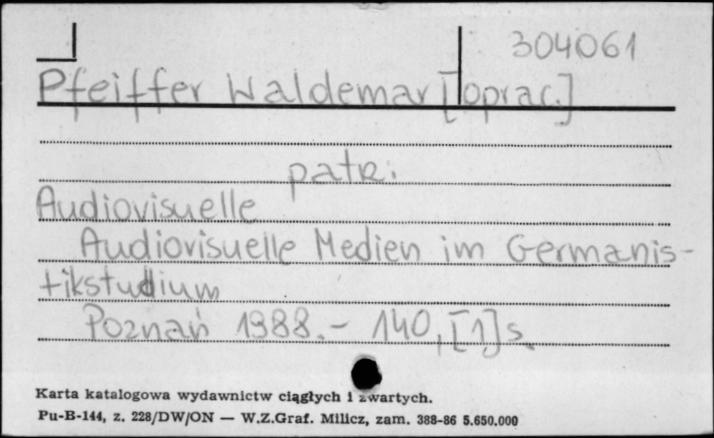 304061
Pfeiffer Waldemar [oprac.]
patrz:
Audiovisuelle
Audiovisuelle Medien im Germanis-
tikstudium
Poznań 1988.- 140, [1] s.
Karta katalogowa wydawnictw ciągłych i zwartych.
Pu-B-144, z. 228/DW/ON — W.Z.Graf. Milicz, zam. 388-86 5.650.000